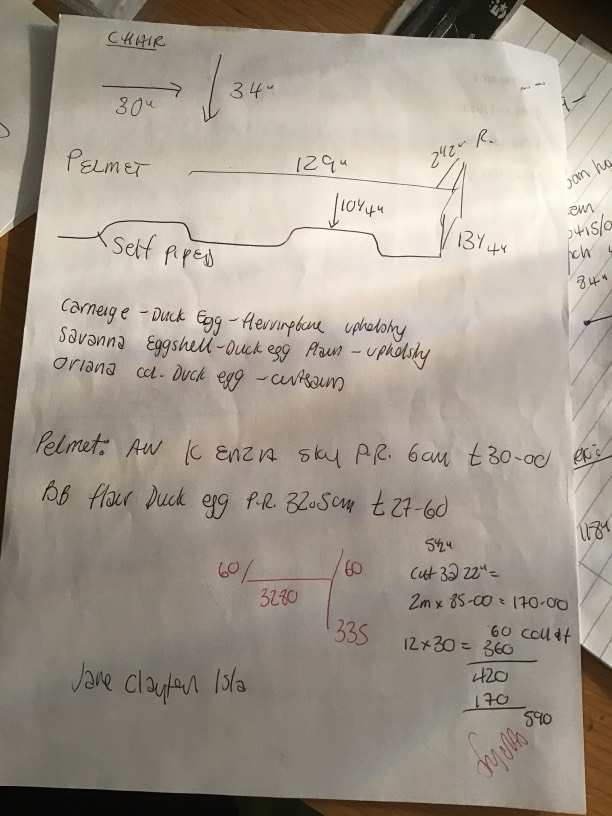 CHAIR
30"
34"
PELMET
129"
R.
10 1/4"
13 1/4"
Self PIPED
Carnerge - Duck Egg - Herringbone upholstry
Savanna Eggshell - Duck egg Plain - upholstry
Oriana col. Duck egg - curtains
Pelmet: AW KENZA Sky P.R. 6cm £30-00
BB flair Duck egg P.R. 32.5cm £27-60
60
60
3280
335
cut 3 @ 22" =
2m x 85-00 = 170-00
60
12 x 30 = 360
420
170
590
Jane Clayton
84"
118"